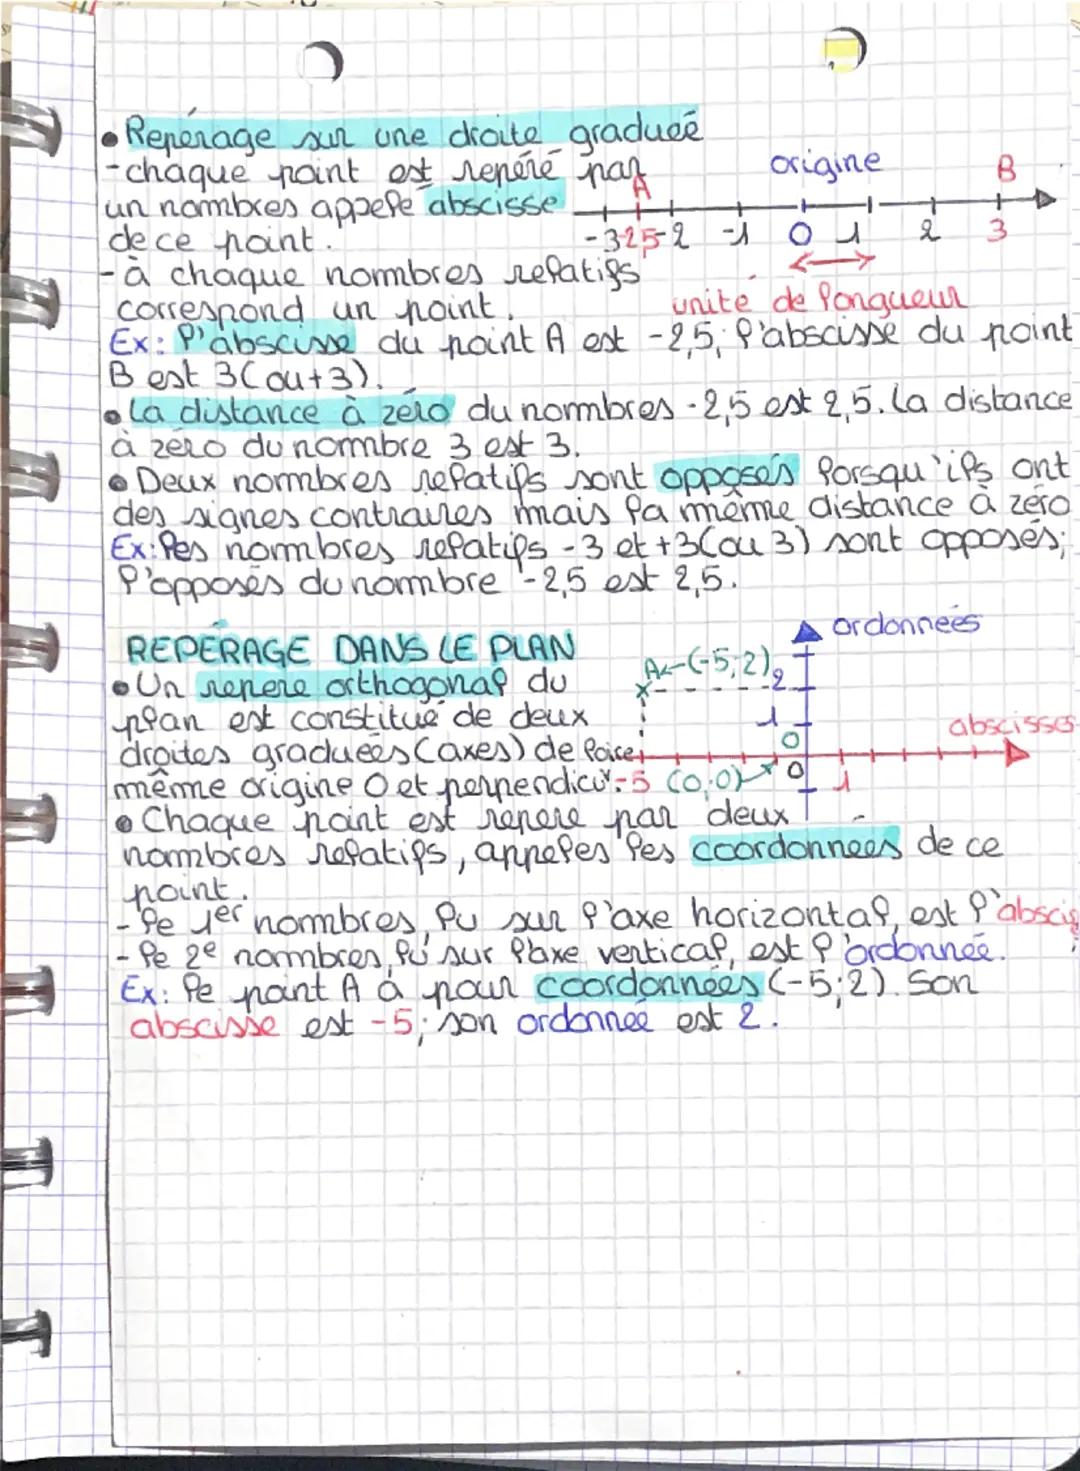 • Repérage sur une droite graduée
- chaque point est repéré par
un nombres appelé abscisse
de ce point.
origine
A
B
-3 -2,5 -2 -1 0 1 2 3
unité de longueur
- à chaque nombres relatifs
correspond un point.
Ex: l'abscisse du point A est -2,5; l'abscisse du point
B est 3(ou+3).
• la distance à zéro du nombres -2,5 est 2,5. la distance
à zéro du nombre 3 est 3.
• Deux nombres relatifs sont opposés lorsqu'ils ont
des signes contraires mais la même distance à zéro
Ex: les nombres relatifs -3 et +3(ou 3) sont opposés;
l'opposés du nombre -2,5 est 2,5.
REPÉRAGE DANS LE PLAN
• Un repère orthogonal du
plan est constitué de deux
droites graduées (axes) de
même origine O et perpendicu
ordonnées
A (-5;2)
2
1
abscisses
0
-5 (0;0) 0 1
• Chaque point est repéré par deux
nombres relatifs, appelés les coordonnées de ce
point.
- le 1er nombres, lu sur l'axe horizontal, est l'abscis
- le 2e nombres, lu sur l'axe vertical, est l'ordonnée.
Ex: le point A à pour coordonnées (-5;2). Son
abscisse est -5; son ordonnée est 2.